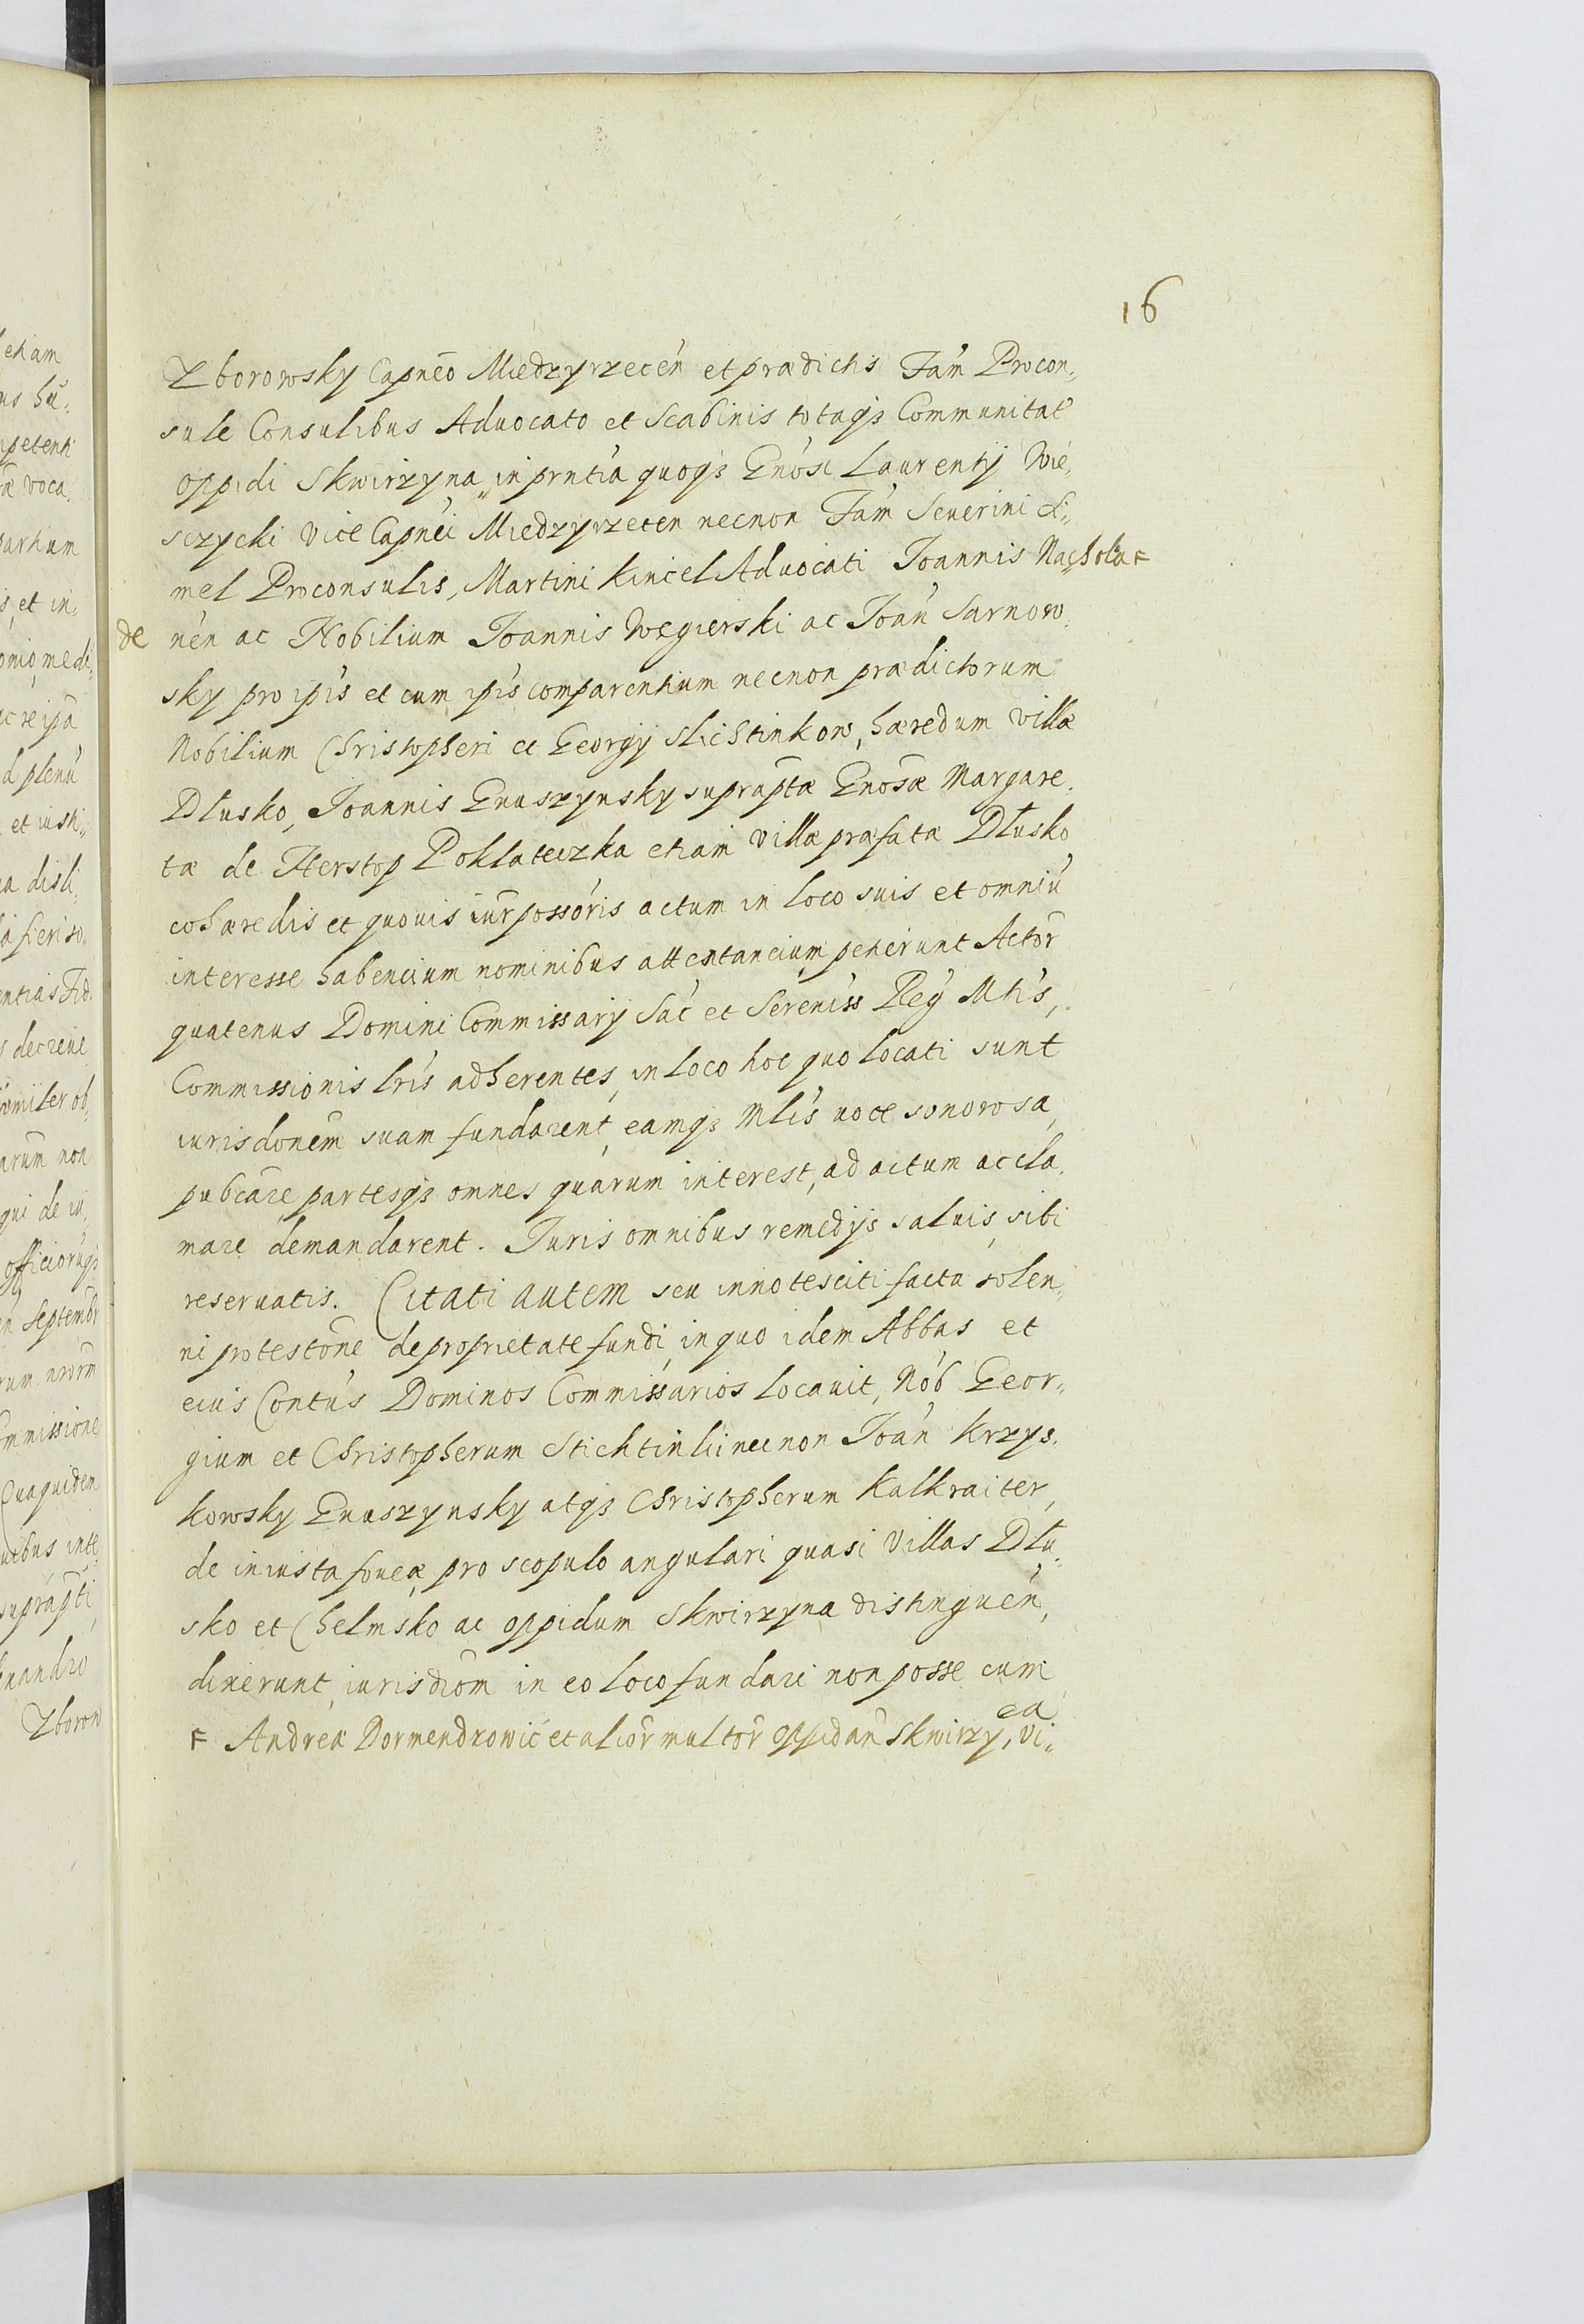 16
Zborowsky Capnēo Miedzyrzecen̄ et prædictis Fam̄ Procon„
sule Consulibus Aduocato et Scabinis totaq₃ Communitat̄
oppidi Skwirzyna, in pn̄tia quoq₃ Gn̄osi Laurentij Wie„
sczycki Vice Capn̄ei Miedzyrzecen necnon Fam̄ Seuerini Li„
mel Proconsulis, Martini Kincel Aduocati Joannis Nachola F
de nen̄ ac Nobilium Joannis Wegierski ac Joan̄ Sarnow„
sky pro ip̄is et cum ip̄is comparentium necnon prædictorum
Nobilium Christopheri et Georgy Slichtinkow, hæredum villæ
Dłusko, Joannis Gnuszynsky suprap̄tæ Gn̄osæ Margare„
tæ de Herstop Poklateczka etiam villæ præfatæ Dłusko
cohæredis et quouis iur̄ possōris actum in loco suis et omniū
interesse habencium nominibus attentancium petierunt Actōr
quatenus Domini Commissarij Sac̄ et Sereniss̄ Reg̃ Mtis̄,
Commissionis lr̄is adherentes, in loco hoc quo locati sunt
iurisdonēm suam fundarent, eamq₃ Mlis̄ uoce sonorosa,
pubcāre partesq₃ omnes quarum interest, ad actum accla„
mare demandarent. Juris omnibus remedijs saluis, sibi
reseruatis. Citati autem seu innotesciti facta solen„
ni protestōne de proprietate fundi, in quo idem Abbas et
eius Contūs Dominos Commissarios locauit, Nob̄ Geor„
gium et Christopherum Stichtinki necnon Joan̄ Krzys„
kowsky Gnuszynsky atq₃ Christopherum Kalkraiter,
de iniusta foueæ, pro scopulo angulari quasi Villas Dłu„
sko et Chelmsko ac oppidum Skwirzyna distinguen̄,
dixerunt, iurisdiōm in eo loco fundari non posse cum
ea
F Andreæ Dormendrowic̄ et alior̄ multor̄ oppidan̄ Skwirzy, Vi„